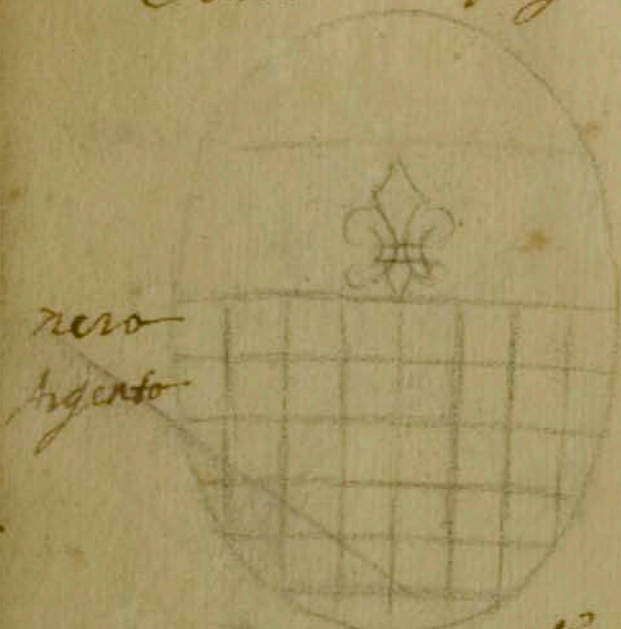 nero
Argento